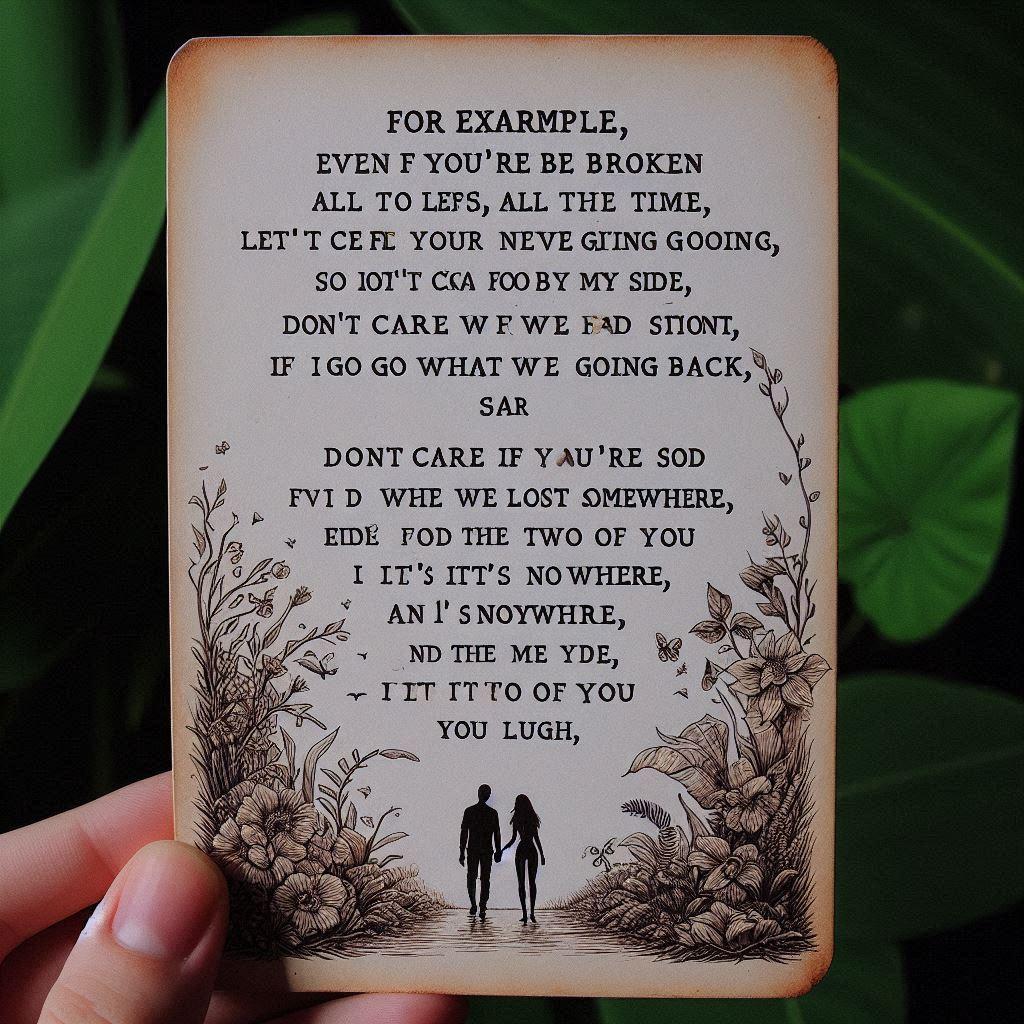 FOR EXARMPLE,
EVEN F YOU'RE BE BROKEN
ALL TO LEPS, ALL THE TIME,
LET'T CE FE YOUR NEVE GING GOOING,
SO IOT'T CCA FOO BY MY SIDE,
DON'T CARE W F WE FAD STIONT,
IF I GO GO WHAT WE GOING BACK,
SAR
DONT CARE IF YAU'RE SOD
FVI D WHE WE LOST SOMEWHERE,
EIDE FOD THE TWO OF YOU
I IT'S ITT'S NOWHERE,
AN I'S NOYWHRE,
ND THE ME YDE,
I IT IT TO OF YOU
YOU LUGH,